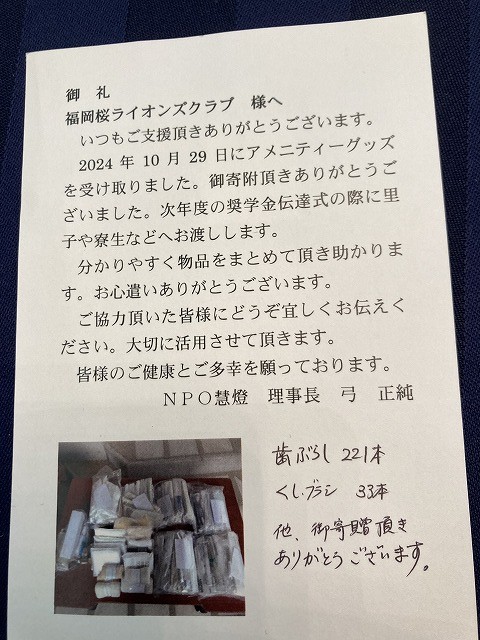 御 礼
福岡桜ライオンズクラブ 様へ
いつもご支援頂きありがとうございます。
2024 年 10 月 29 日にアメニティーグッズ
を受け取りました。御寄附頂きありがとうご
ざいました。次年度の奨学金伝達式の際に里
子や寮生などへお渡しします。
分かりやすく物品をまとめて頂き助かりま
す。お心遣いありがとうございます。
ご協力頂いた皆様にどうぞ宜しくお伝えく
ださい。大切に活用させて頂きます。
皆様のご健康とご多幸を願っております。
NPO慧燈 理事長 弓 正純
歯ぶらし 221本
くし、ブラシ 33本
他、御寄贈頂き
ありがとうございます。